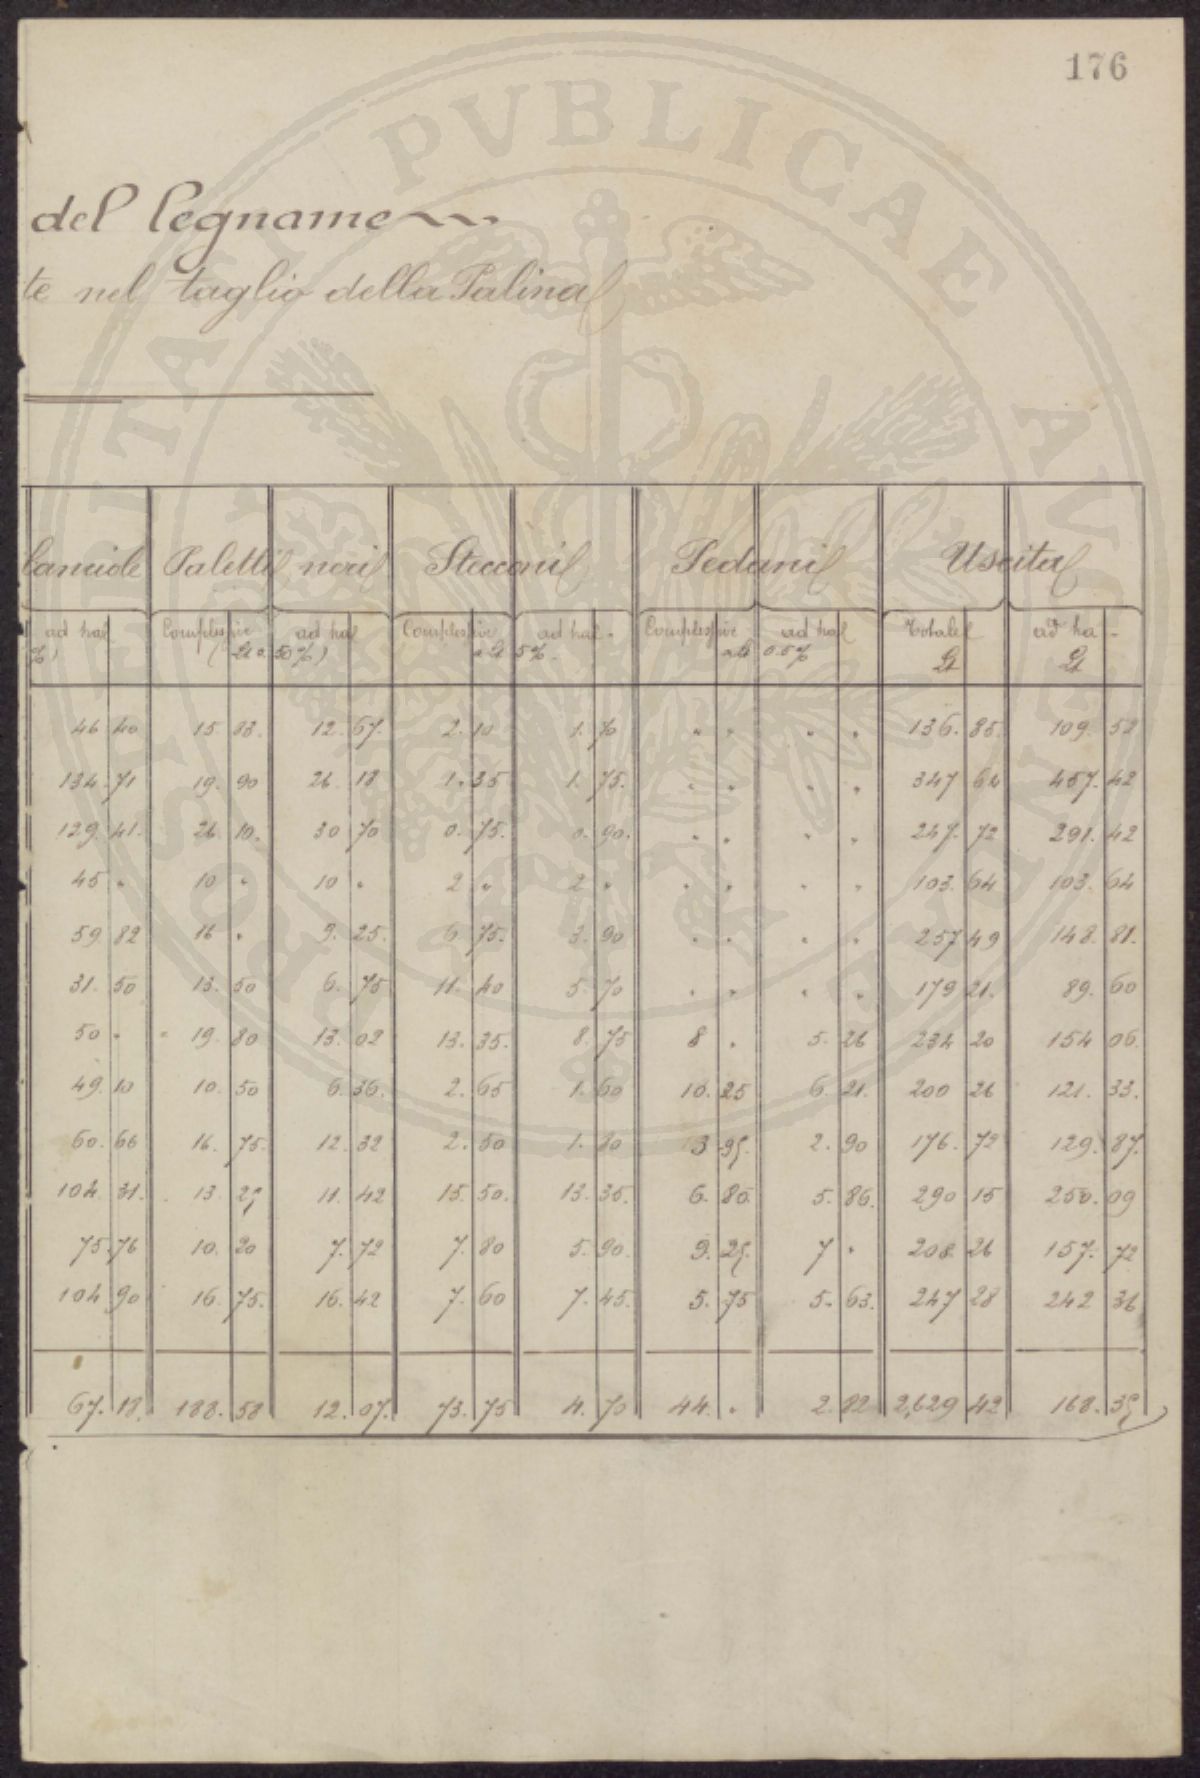 176
del legname
te nel taglio della Palina
Paletti neri Stecconi Pedani Uscita
ad ha Complessive ad ha Complessive ad ha. Complessive ad ha Totale ad ha.
%) 50%) 5%. 0.5%
46 40 15 83. 12. 67. 2. 10 1. 70 " " " " 136. 85. 109. 52
134. 71 19. 90 26. 18 1. 35 1. 75. " " " " 347 64 457. 42
129. 41. 26. 10. 30 70 0. 75. 0. 90. " " " " 247. 72 291. 42
45 " 10 " 10 " 2 " 2 " " " " " 103. 64 103. 64
59 82 16 " 9. 25. 6. 75. 3. 90 " " " " 257 49 148. 81.
31. 50 13. 50 6. 75 11. 40 5. 70 " " " " 179 21. 89. 60
50 " 19. 80 13. 02 13. 35. 8. 75 8 " 5. 26 234 20 154 06.
49. 10 10. 50 6. 36. 2. 65 1. 60 10. 25 6. 21. 200 26 121. 33.
60. 66 16. 75. 12. 32 2. 50 1. 80 3 95. 2. 90 176. 72 129. 87.
104. 31. 13. 25 11. 42 15. 50. 13. 35. 6. 80. 5. 86. 290 15 250. 09
75. 76 10. 20 7. 72 7. 80 5. 90. 9. 25. 7 " 208 26 157. 72
104 90 16. 75. 16. 42 7. 60 7. 45. 5. 75 5. 63. 247 28 242 36
67. 18. 188. 58 12. 07. 73. 75 4. 70 44. " 2. 82 2,629 42 168. 35
PVBLICAE